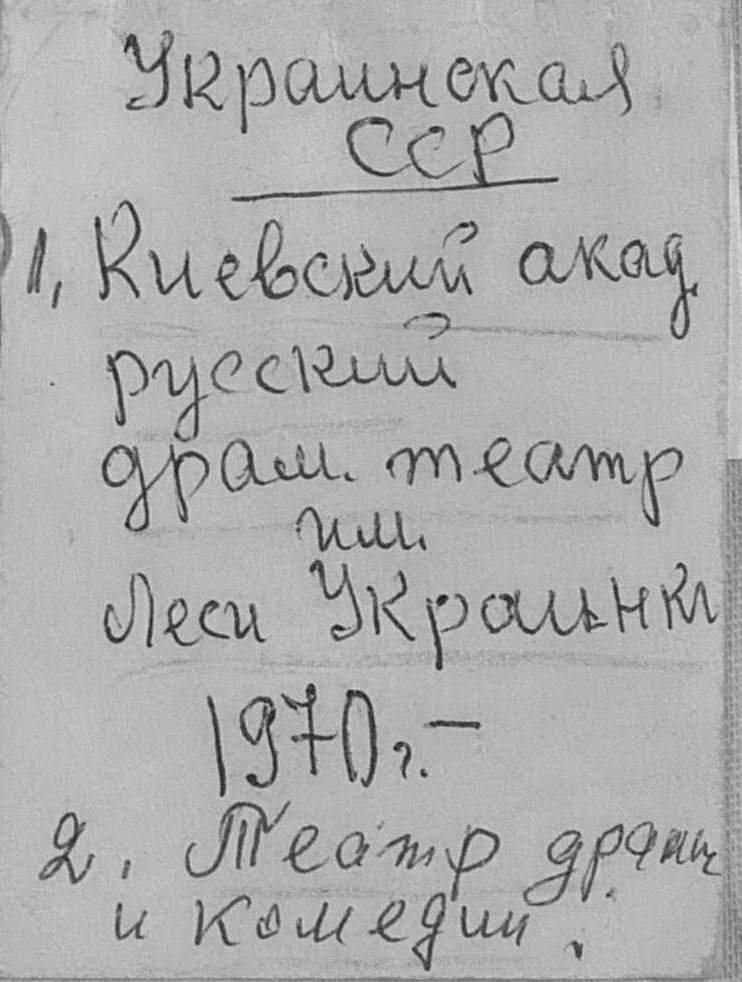 Украинская
ССР
1, Киевский акад.
русский
драм. театр
им.
Леси Украинки
1970г.—
2. Театр драмы
и комедии.